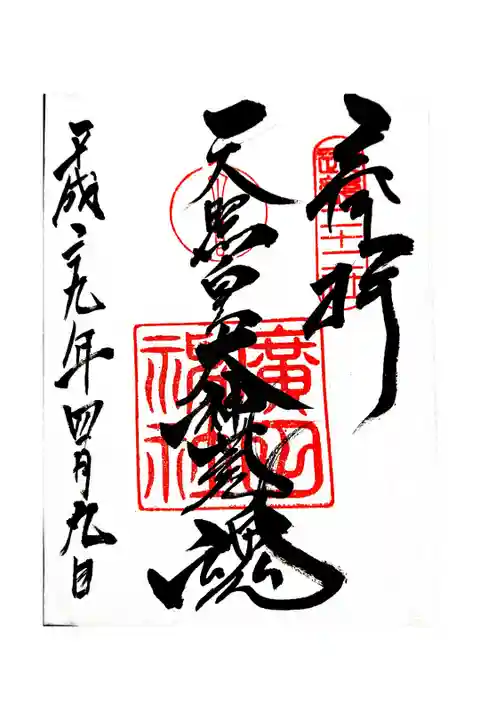 奉拝
天照皇大神荒魂
廣田
神社
平成二九年四月九日